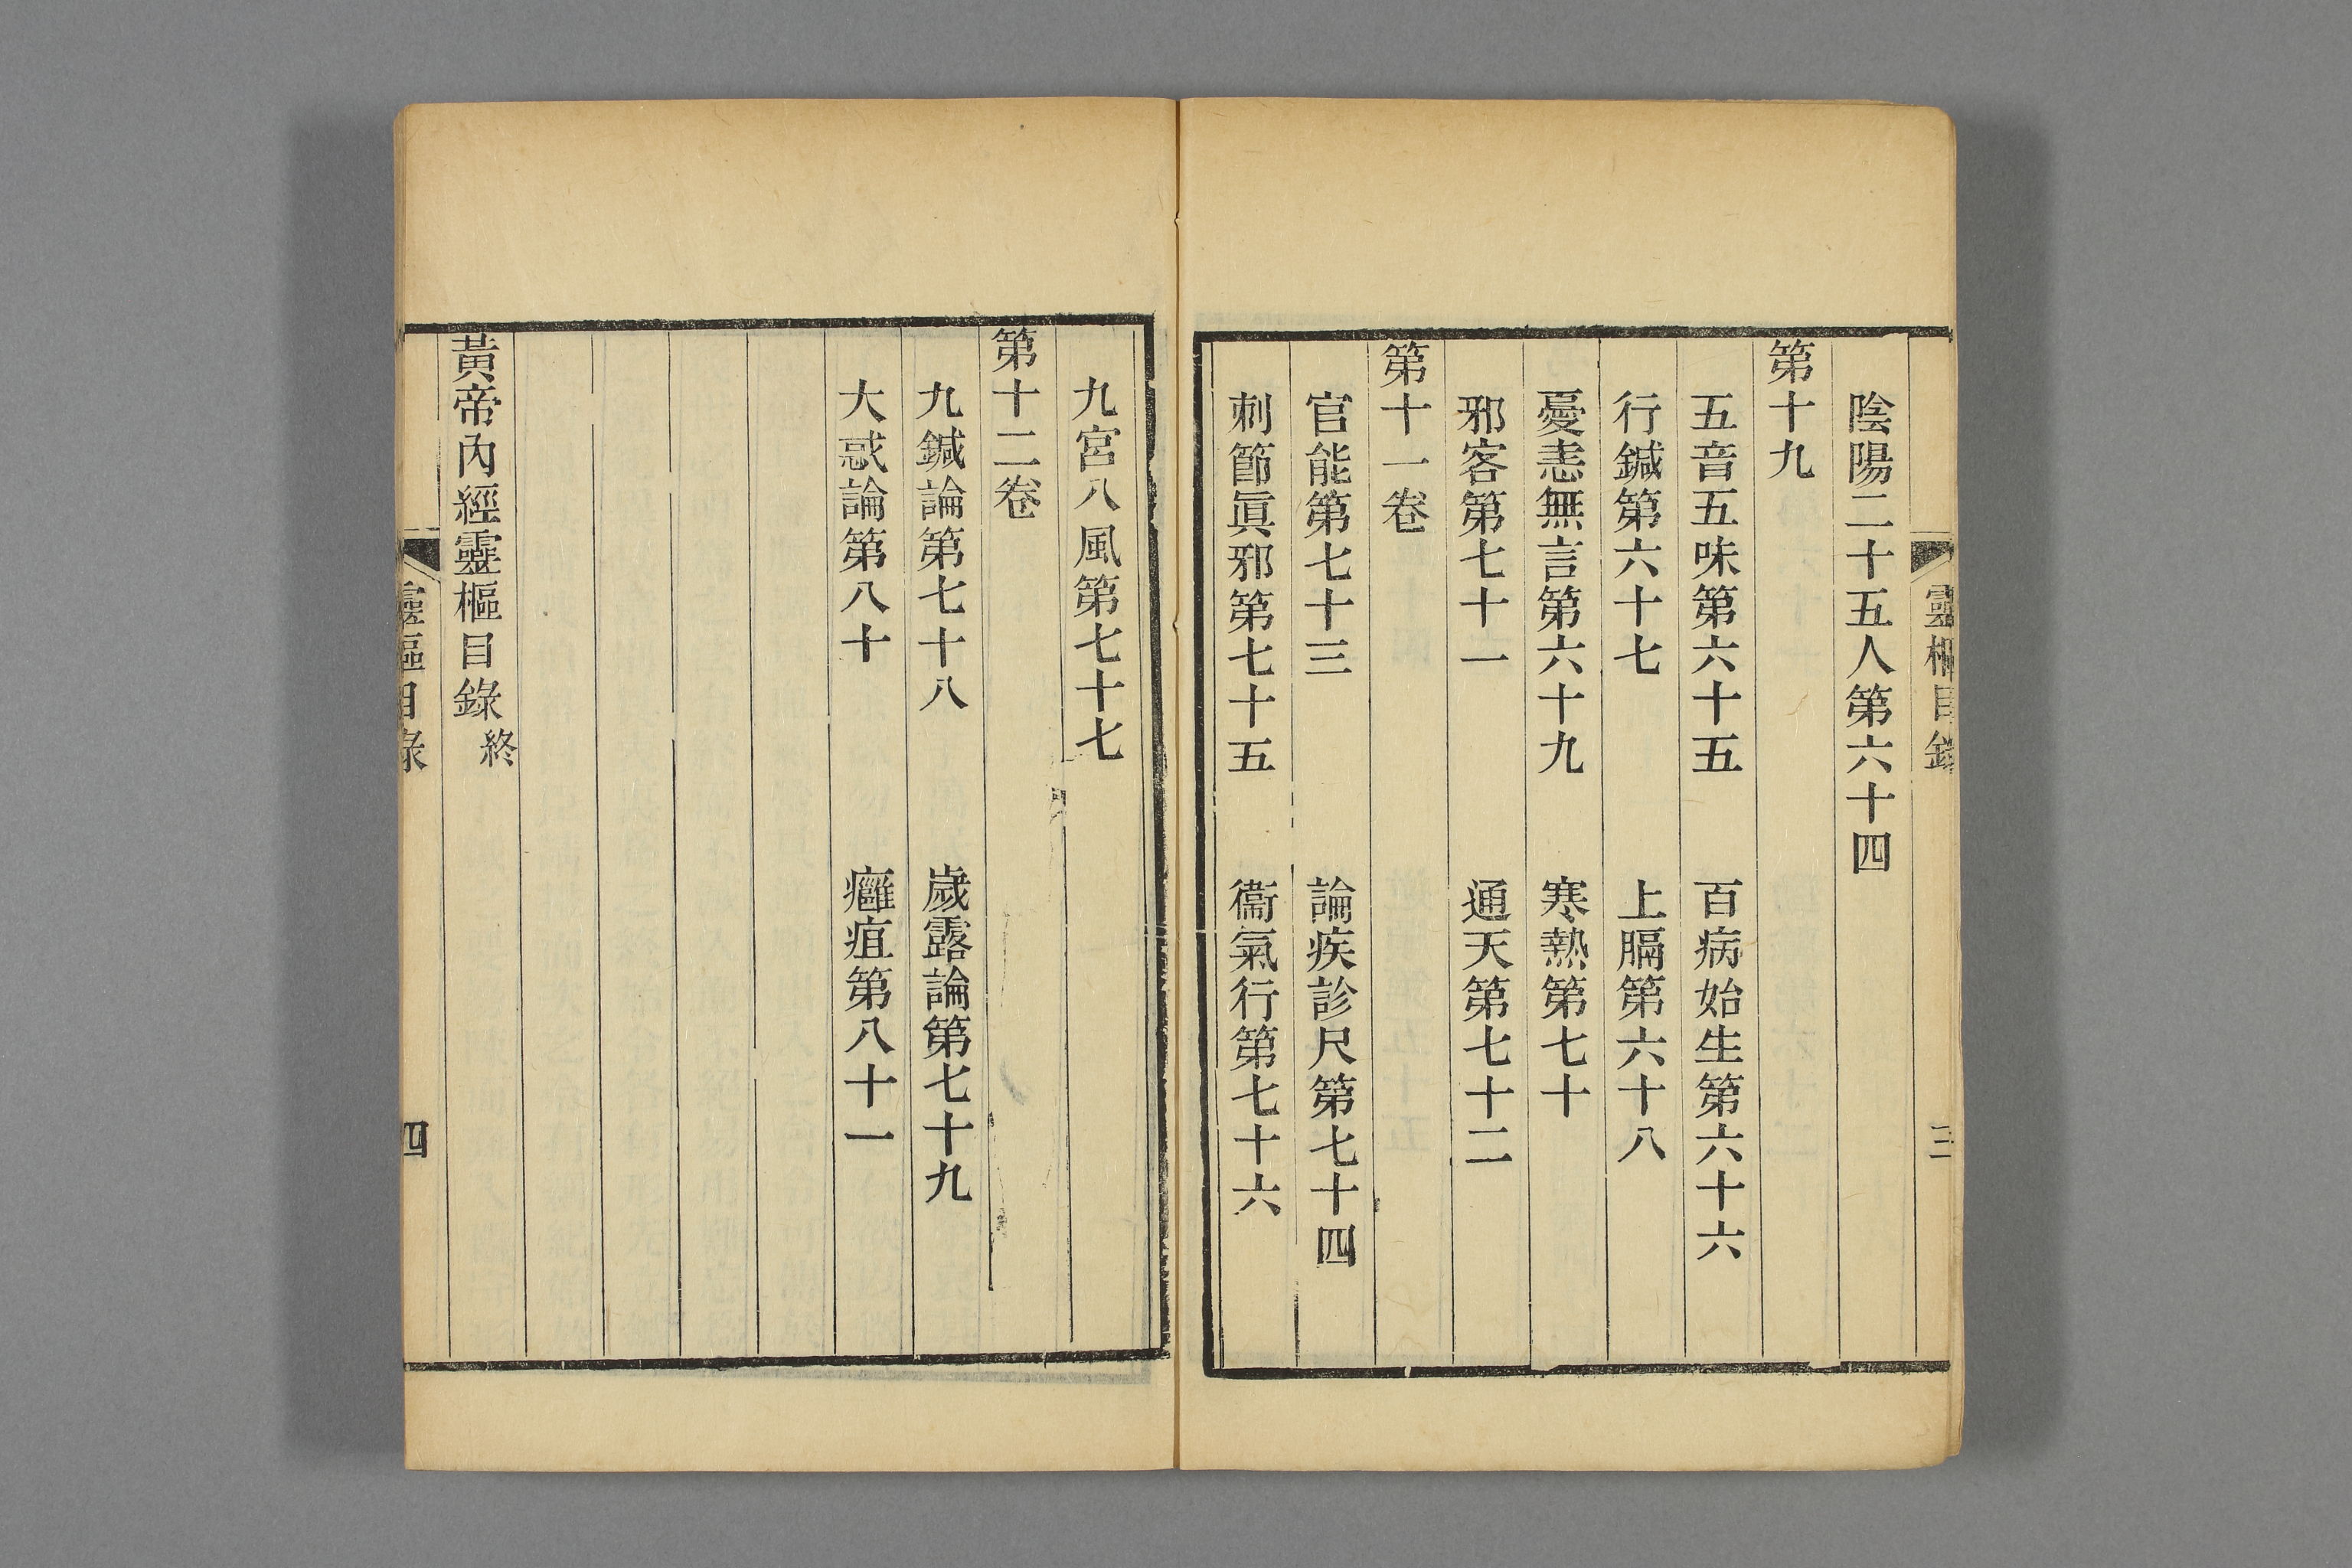 靈樞目錄
三
陰陽二十五人第六十四
第十九
五音五味第六十五　百病始生第六十六
行鍼第六十七　上膈第六十八
憂恚無言第六十九　寒熱第七十
邪客第七十一　通天第七十二
第十一卷
官能第七十三　論疾診尺第七十四
刺節眞邪第七十五　衞氣行第七十六
九宮八風第七十七
第十二卷
九鍼論第七十八　歲露論第七十九
大惑論第八十　癰疽第八十一
黃帝內經靈樞目錄終
靈樞目錄
四